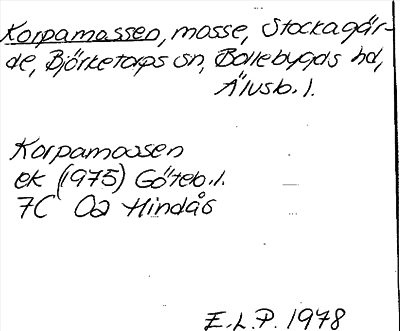 Korpamossen, mosse, Stockagär-
de, Björketorps sn, Bollebygds hd,
Älvsb. l.
Korpamossen
ek (1975) Göteb. l.
7C 0a Hindås
E.L.P. 1978